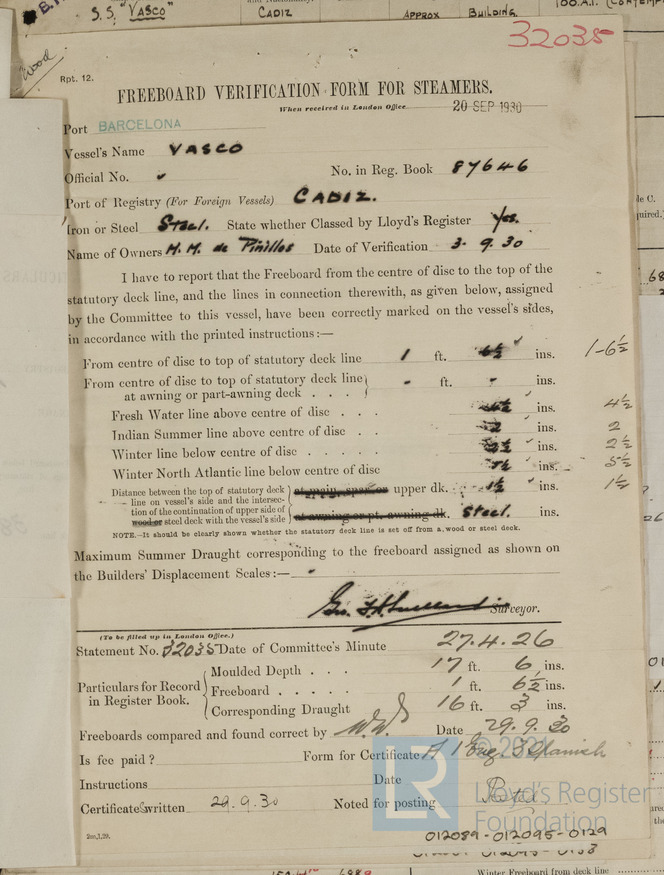 S. S. "VASCO"
CADIZ
APPROX BUILDING.
32035
Wood
Rpt. 12.
FREEBOARD VERIFICATION FORM FOR STEAMERS.
When received in London Office 20 SEP 1930
Port BARCELONA
Vessel's Name VASCO
Official No. No. in Reg. Book 87646
Port of Registry (For Foreign Vessels) CADIZ.
Iron or Steel Steel. State whether Classed by Lloyd's Register Yes.
Name of Owners M. M. de Pinillos Date of Verification 3. 9. 30
I have to report that the Freeboard from the centre of disc to the top of the
statutory deck line, and the lines in connection therewith, as given below, assigned
by the Committee to this vessel, have been correctly marked on the vessel's sides,
in accordance with the printed instructions:—
From centre of disc to top of statutory deck line 1 ft. 6½ ins. 1-6½
From centre of disc to top of statutory deck line
at awning or part-awning deck . . . - ft. - ins.
Fresh Water line above centre of disc . . . 4½ ins. 4½
Indian Summer line above centre of disc . . 2 ins. 2
Winter line below centre of disc . . . . . 2½ ins. 2½
Winter North Atlantic line below centre of disc 5½ ins. 5½
Distance between the top of statutory deck
line on vessel's side and the intersec-
tion of the continuation of upper side of
wood or steel deck with the vessel's side
at main, spar or upper dk. 1½ ins. 1½
at awning or pt. awning dk. Steel. ins.
NOTE.—It should be clearly shown whether the statutory deck line is set off from a wood or steel deck.
Maximum Summer Draught corresponding to the freeboard assigned as shown on
the Builders' Displacement Scales:— -
Surveyor.
(To be filled up in London Office.)
Statement No. 32035 Date of Committee's Minute 27.4.26
Particulars for Record
in Register Book.
Moulded Depth . . . 17 ft. 6 ins.
Freeboard . . . . . 1 ft. 6½ ins.
Corresponding Draught 16 ft. 3 ins.
Freeboards compared and found correct by Date 29.9.30
Is fee paid? Form for Certificate A 1 Eng. 3 Spanish
Instructions Date
Certificates written 29.9.30 Noted for posting
2m,1,29.
© 2021
LR
Lloyd's Register
Foundation
012089-012095-0129
Winter Freeboard from deck line